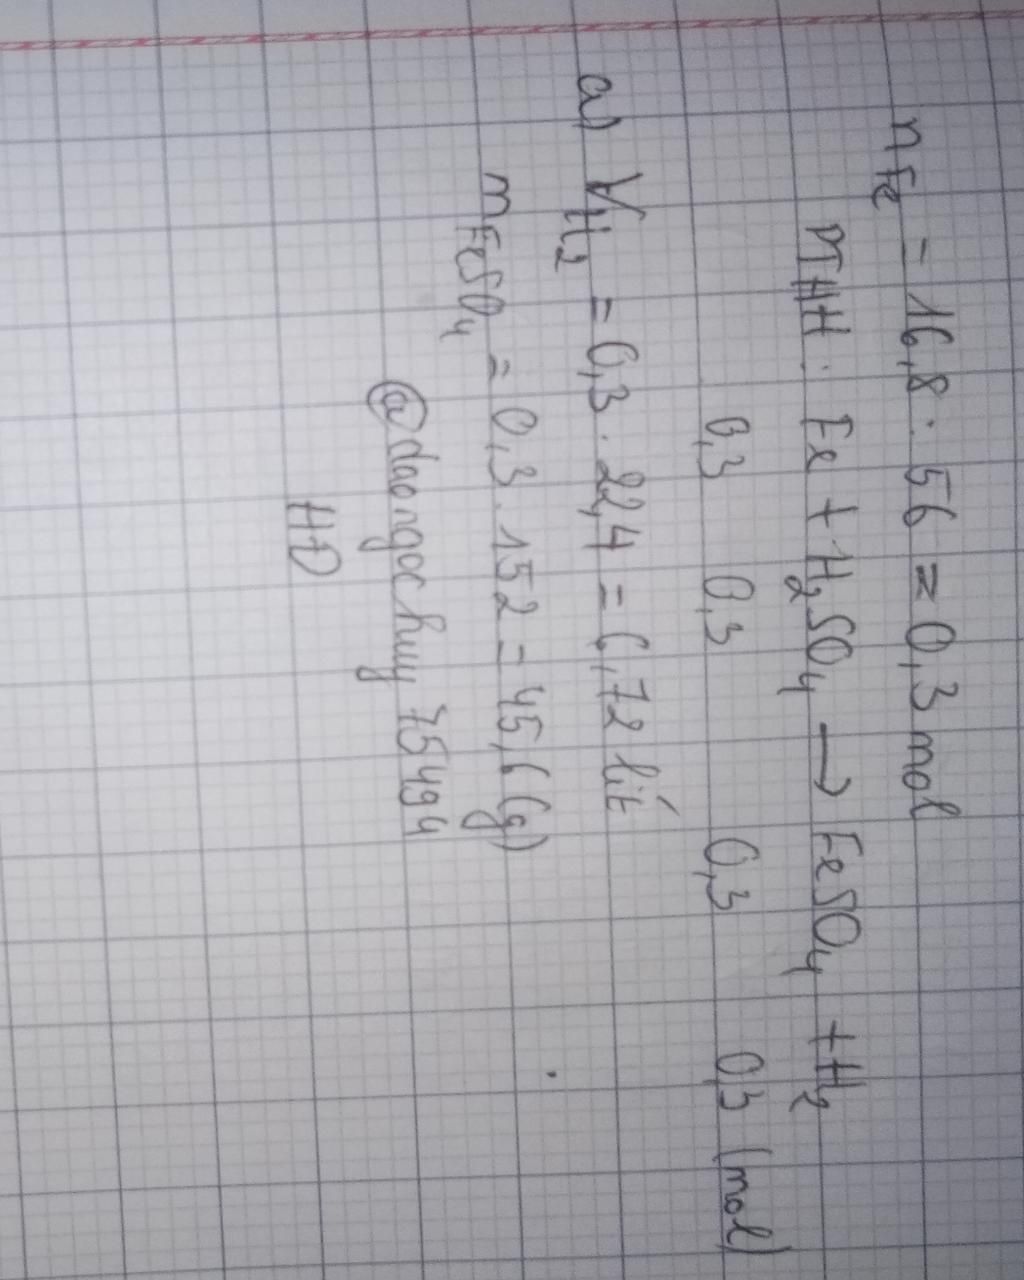 n Fe = 16,8 : 56 = 0,3 mol
PTHH : Fe + H2SO4 → FeSO4 + H2
0,3 0,3 0,3 0,3 (mol)
a) VH2 = 0,3 . 22,4 = 6,72 lít
mFeSO4 = 0,3 . 152 = 45,6 (g)
@daongochuy75494
HĐ